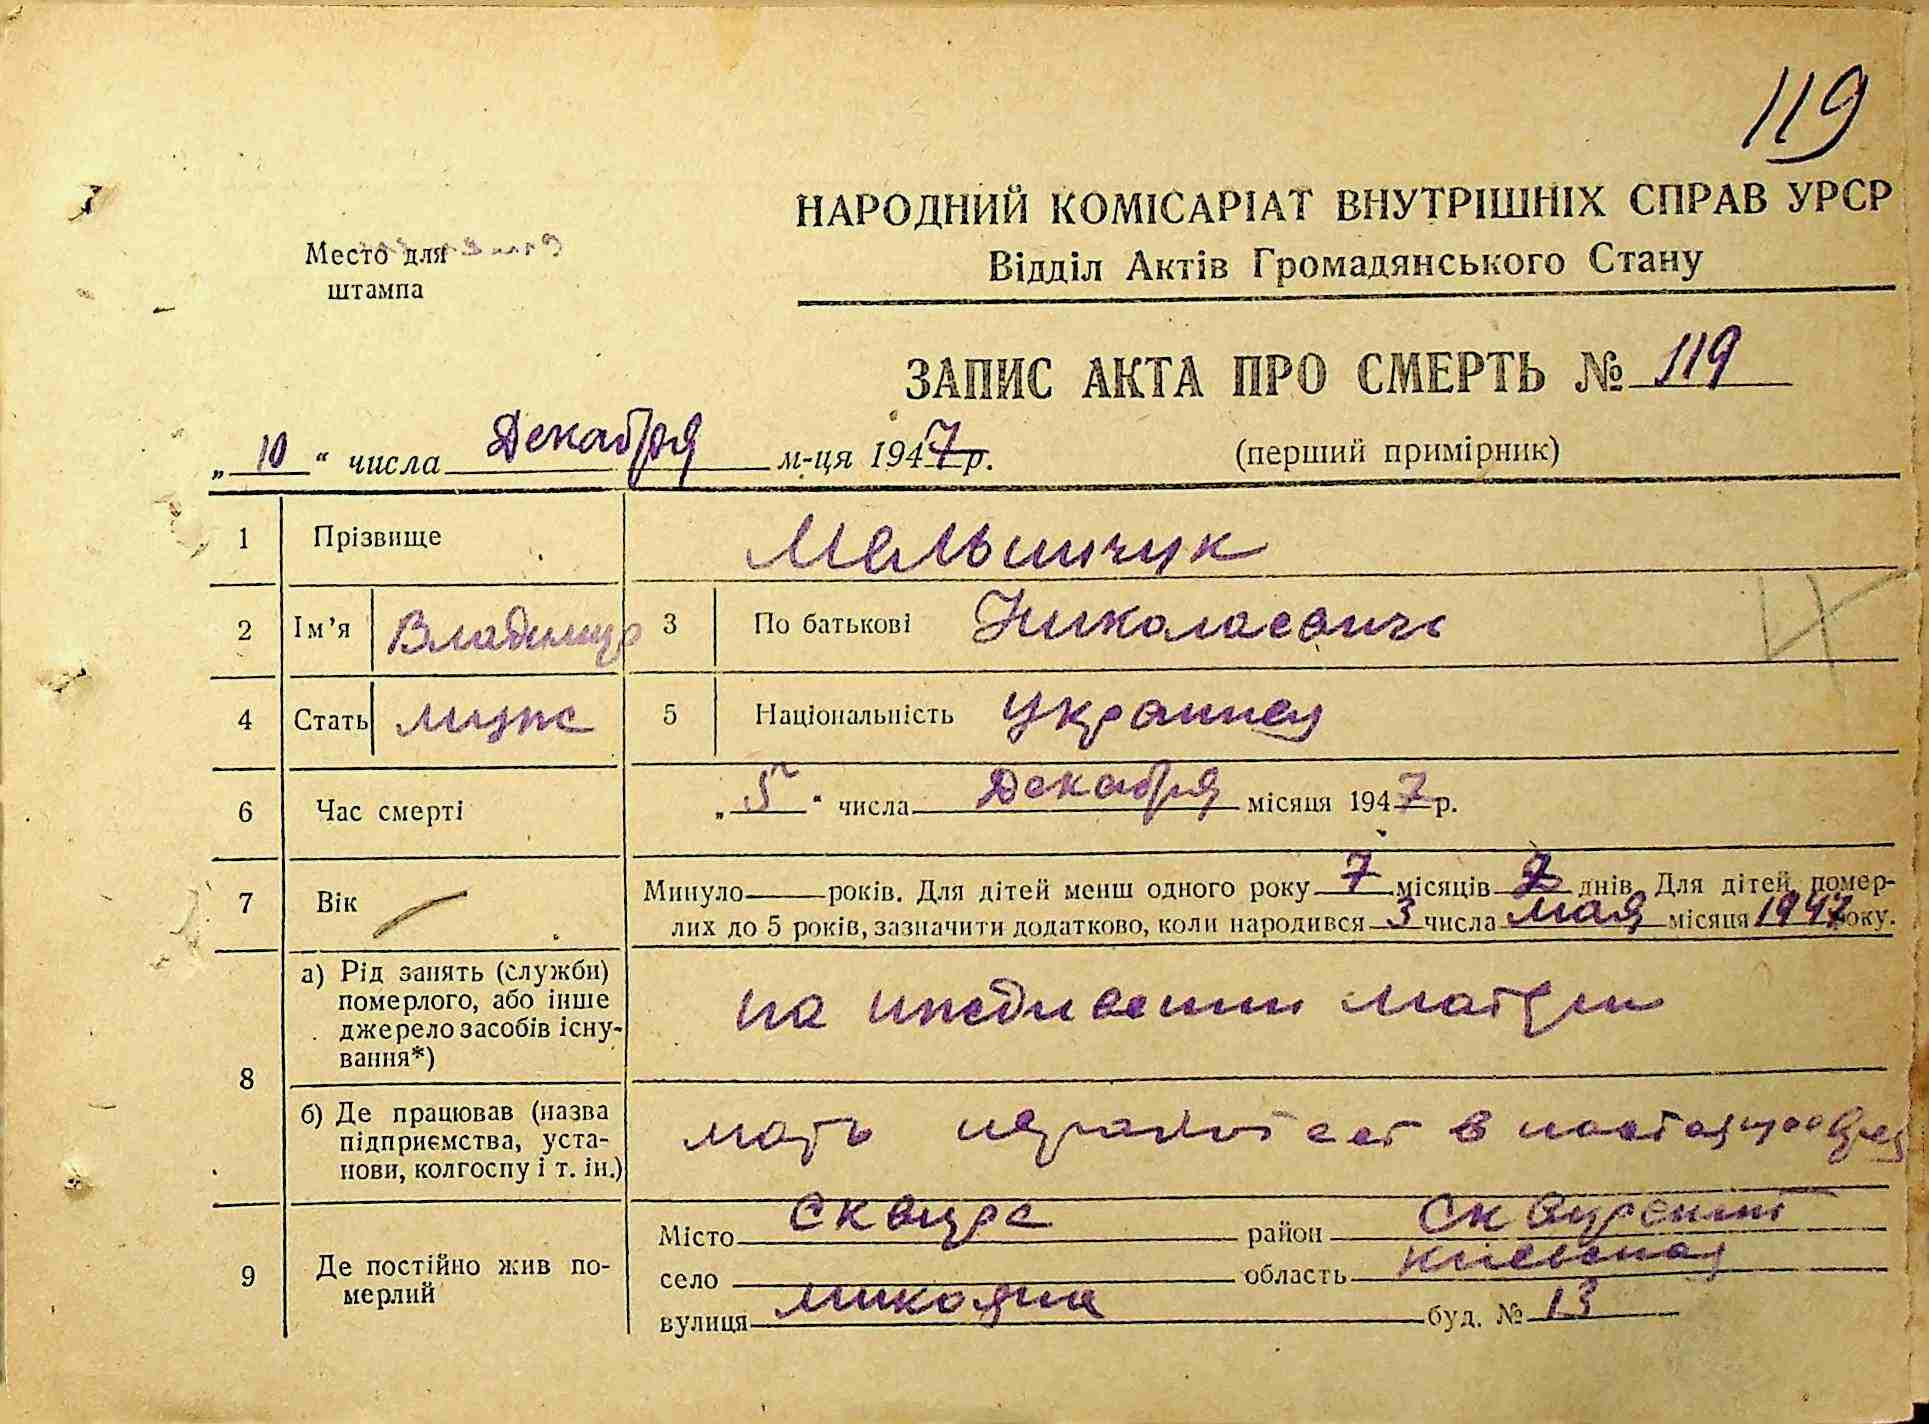 119
НАРОДНИЙ КОМІСАРІАТ ВНУТРІШНІХ СПРАВ УРСР
Відділ Актів Громадянського Стану
Место для
штампа
ЗАПИС АКТА ПРО СМЕРТЬ № 119
(перший примірник)
„10“ числа Декабря м-ця 1947 р.
1 Прізвище Мельничук
2 Ім’я Владимир 3 По батькові Николаевич
4 Стать муж 5 Національність украинец
6 Час смерті „5“ числа Декабря місяця 1947 р.
7 Вік Минуло років. Для дітей менш одного року 7 місяців 2 днів. Для дітей, помер-
лих до 5 років, зазначити додатково, коли народився 3 числа мая місяця 1947 року.
8 а) Рід занять (служби)
померлого, або інше
джерело засобів існу-
вання*)
на иждивении матери
б) Де працював (назва
підприємства, уста-
нови, колгоспу і т. ін.)
мать в
9 Де постійно жив по-
мерлий
Місто Сквира район Сквирский
село область Киевская
вулиця Микояна буд. № 13